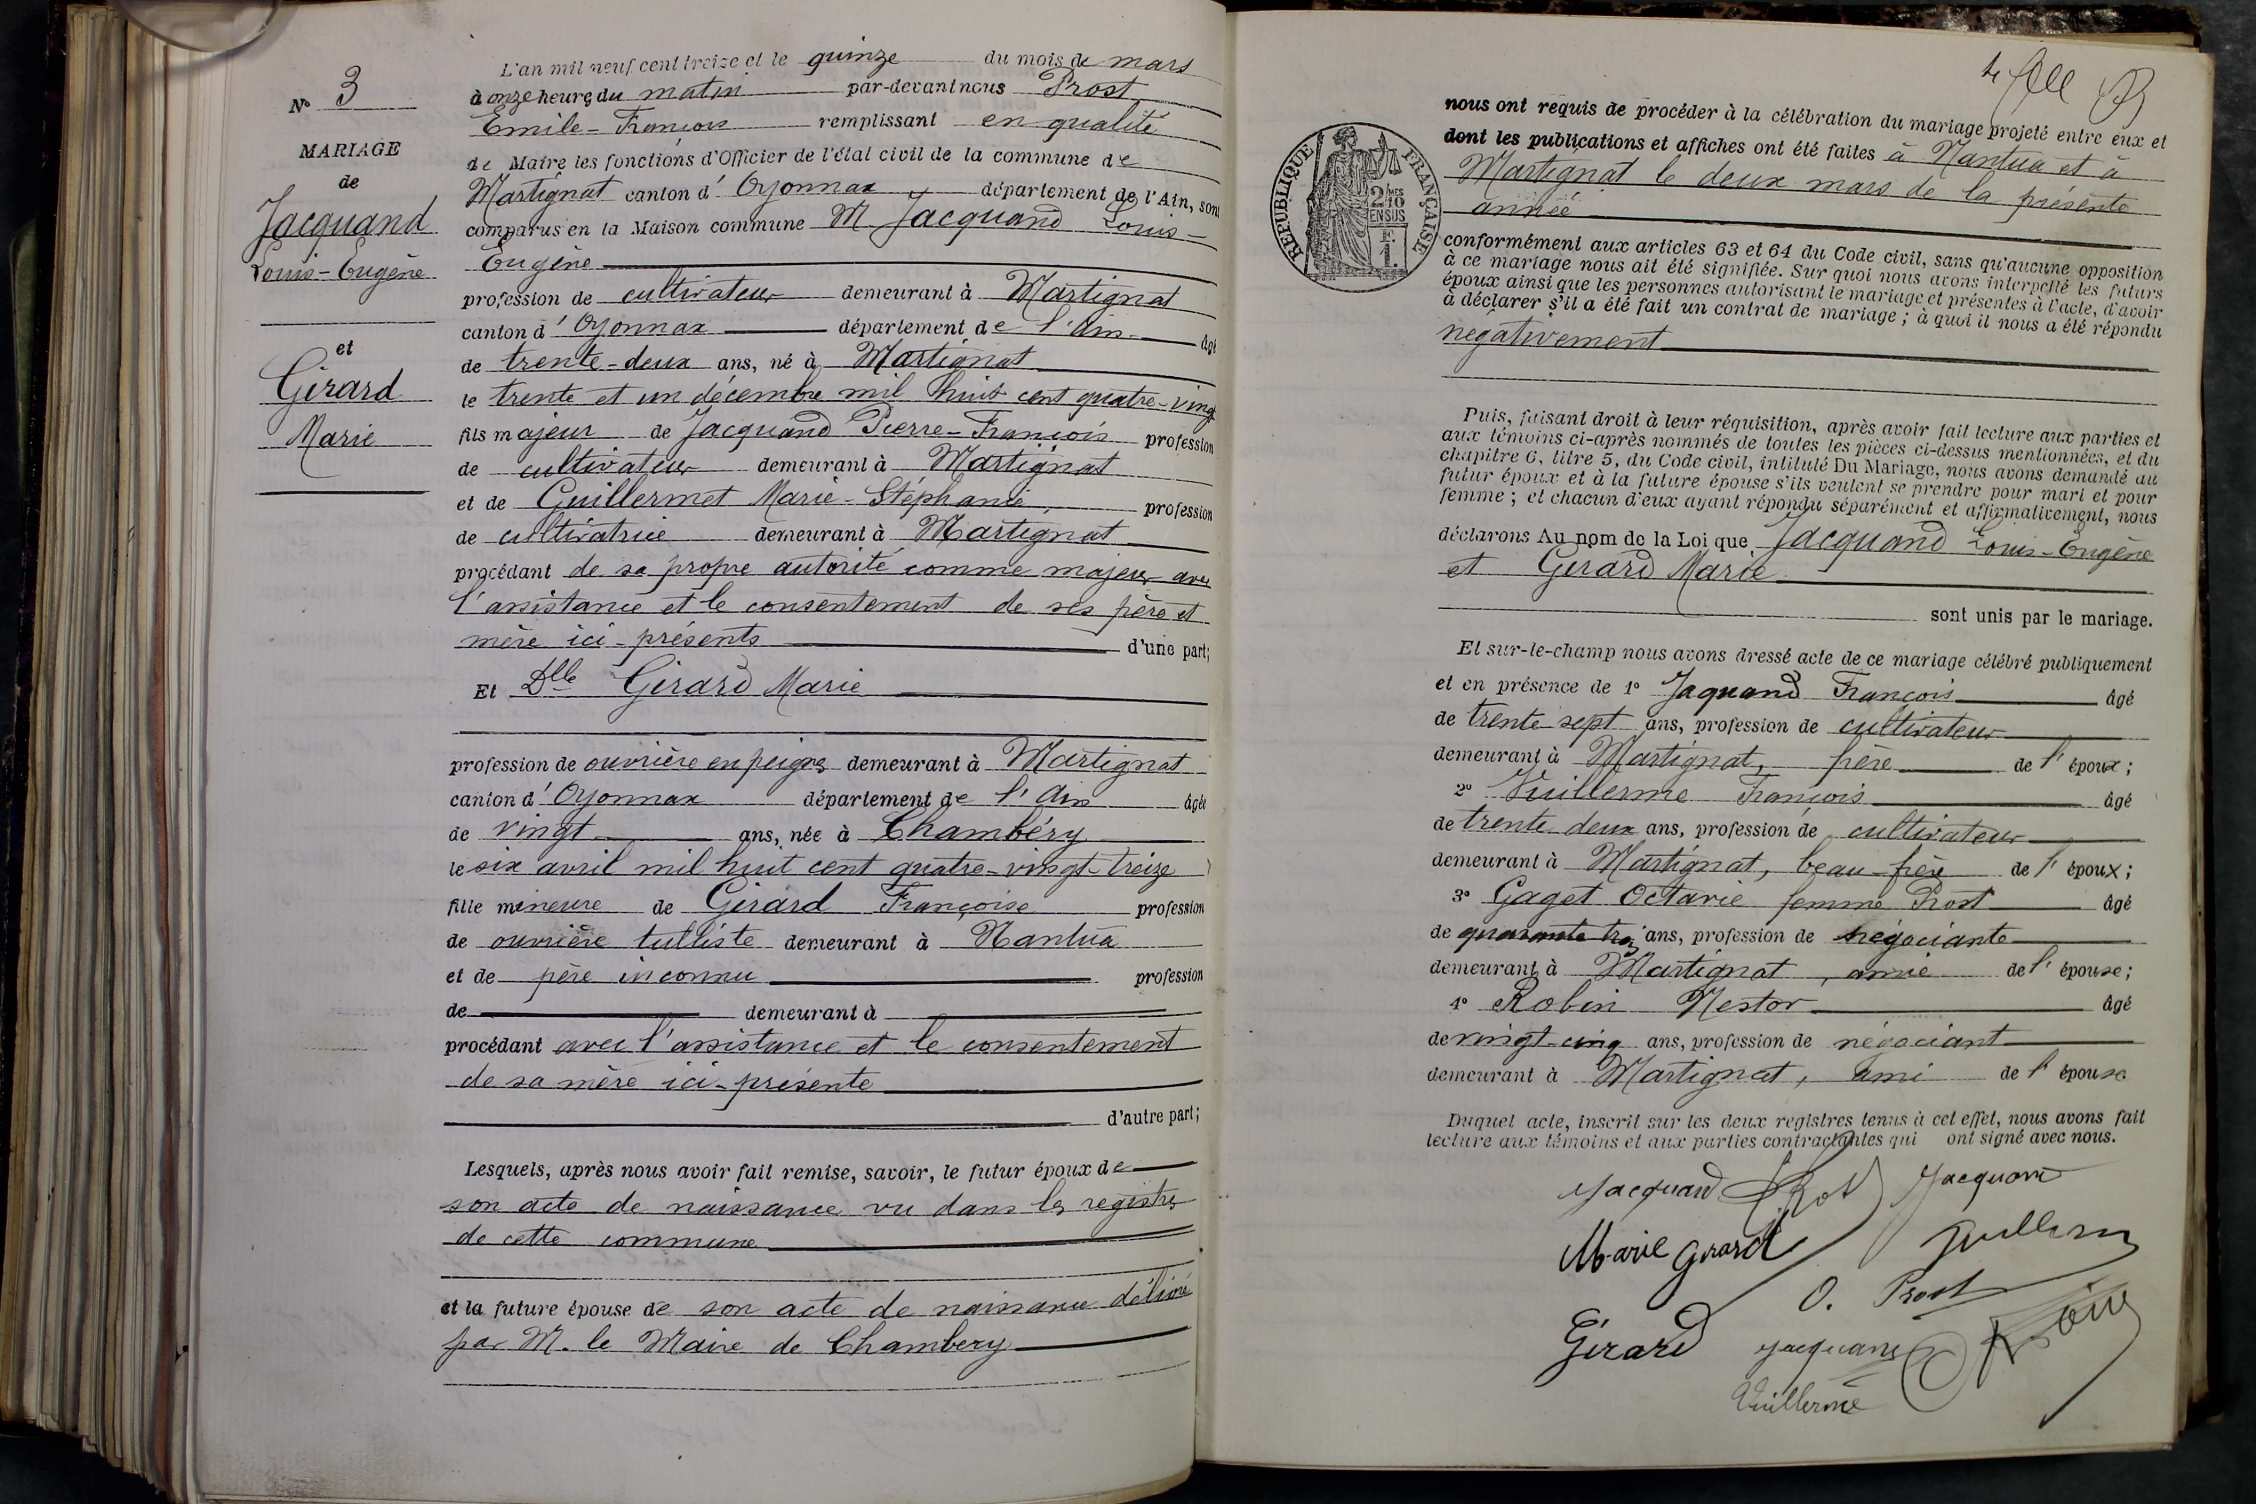 N° 3
MARIAGE
de
Jacquand
Louis-Eugène
et
Girard
Marie
L'an mil neuf cent treize et le quinze du mois de mars
à onze heures du matin par-devant nous Prost
Emile-François remplissant en qualité
de Maire les fonctions d'Officier de l'état civil de la commune de
Martignat canton d'Oyonnax département de l'Ain, sont
comparus en la Maison commune M Jacquand Louis-
Eugène
profession de cultivateur demeurant à Martignat
canton d'Oyonnax département de l'Ain âgé
de trente-deux ans, né à Martignat
le trente et un décembre mil huit cent quatre-vingt
fils majeur de Jacquand Pierre-François profession
de cultivateur demeurant à Martignat
et de Guillermet Marie-Stéphanie profession
de cultivatrice demeurant à Martignat
procédant de sa propre autorité comme majeur avec
l'assistance et le consentement de ses père et
mère ici-présents d'une part;
Et Dlle Girard Marie
profession de ouvrière en peignes demeurant à Martignat
canton d'Oyonnax département de l'Ain âgée
de vingt ans, née à Chambéry
le six avril mil huit cent quatre-vingt-treize
fille mineure de Girard Françoise profession
de ouvrière tulliste demeurant à Nantua
et de père inconnu profession
de demeurant à
procédant avec l'assistance et le consentement
de sa mère ici-présente
d'autre part;
Lesquels, après nous avoir fait remise, savoir, le futur époux de
son acte de naissance vu dans les registres
de cette commune
et la future épouse de son acte de naissance délivré
par M. le Maire de Chambery
nous ont requis de procéder à la célébration du mariage projeté entre eux et
dont les publications et affiches ont été faites à Nantua et à
Martignat le deux mars de la présente
année
RÉPUBLIQUE FRANÇAISE
2/10MES
EN SUS
F.
1.
conformément aux articles 63 et 64 du Code civil, sans qu'aucune opposition
à ce mariage nous ait été signifiée. Sur quoi nous avons interpellé les futurs
époux ainsi que les personnes autorisant le mariage et présentes à l'acte, d'avoir
à déclarer s'il a été fait un contrat de mariage ; à quoi il nous a été répondu
négativement
Puis, faisant droit à leur réquisition, après avoir fait lecture aux parties et
aux témoins ci-après nommés de toutes les pièces ci-dessus mentionnées, et du
chapitre 6, titre 5, du Code civil, intitulé Du Mariage, nous avons demandé au
futur époux et à la future épouse s'ils veulent se prendre pour mari et pour
femme ; et chacun d'eux ayant répondu séparément et affirmativement, nous
déclarons Au nom de la Loi que Jacquand Louis-Eugène
et Girard Marie
sont unis par le mariage.
Et sur-le-champ nous avons dressé acte de ce mariage célébré publiquement
et en présence de 1° Jaquand François âgé
de trente sept ans, profession de cultivateur
demeurant à Martignat, frère de l'époux ;
2° Vuillerme François âgé
de trente deux ans, profession de cultivateur
demeurant à Martignat, beau-frère de l'époux ;
3° Gaget Octavie femme Prost âgé
de quarante trois ans, profession de négociante
demeurant à Martignat, amie de l'épouse ;
4° Robin Nestor âgé
de vingt-cinq ans, profession de négociant
demeurant à Martignat, ami de l'épouse
Duquel acte, inscrit sur les deux registres tenus à cet effet, nous avons fait
lecture aux témoins et aux parties contractantes qui ont signé avec nous.
Jacquand Prost Jacquand
Marie Girard
O. Prost
Girard Jacquand
Vuillerme